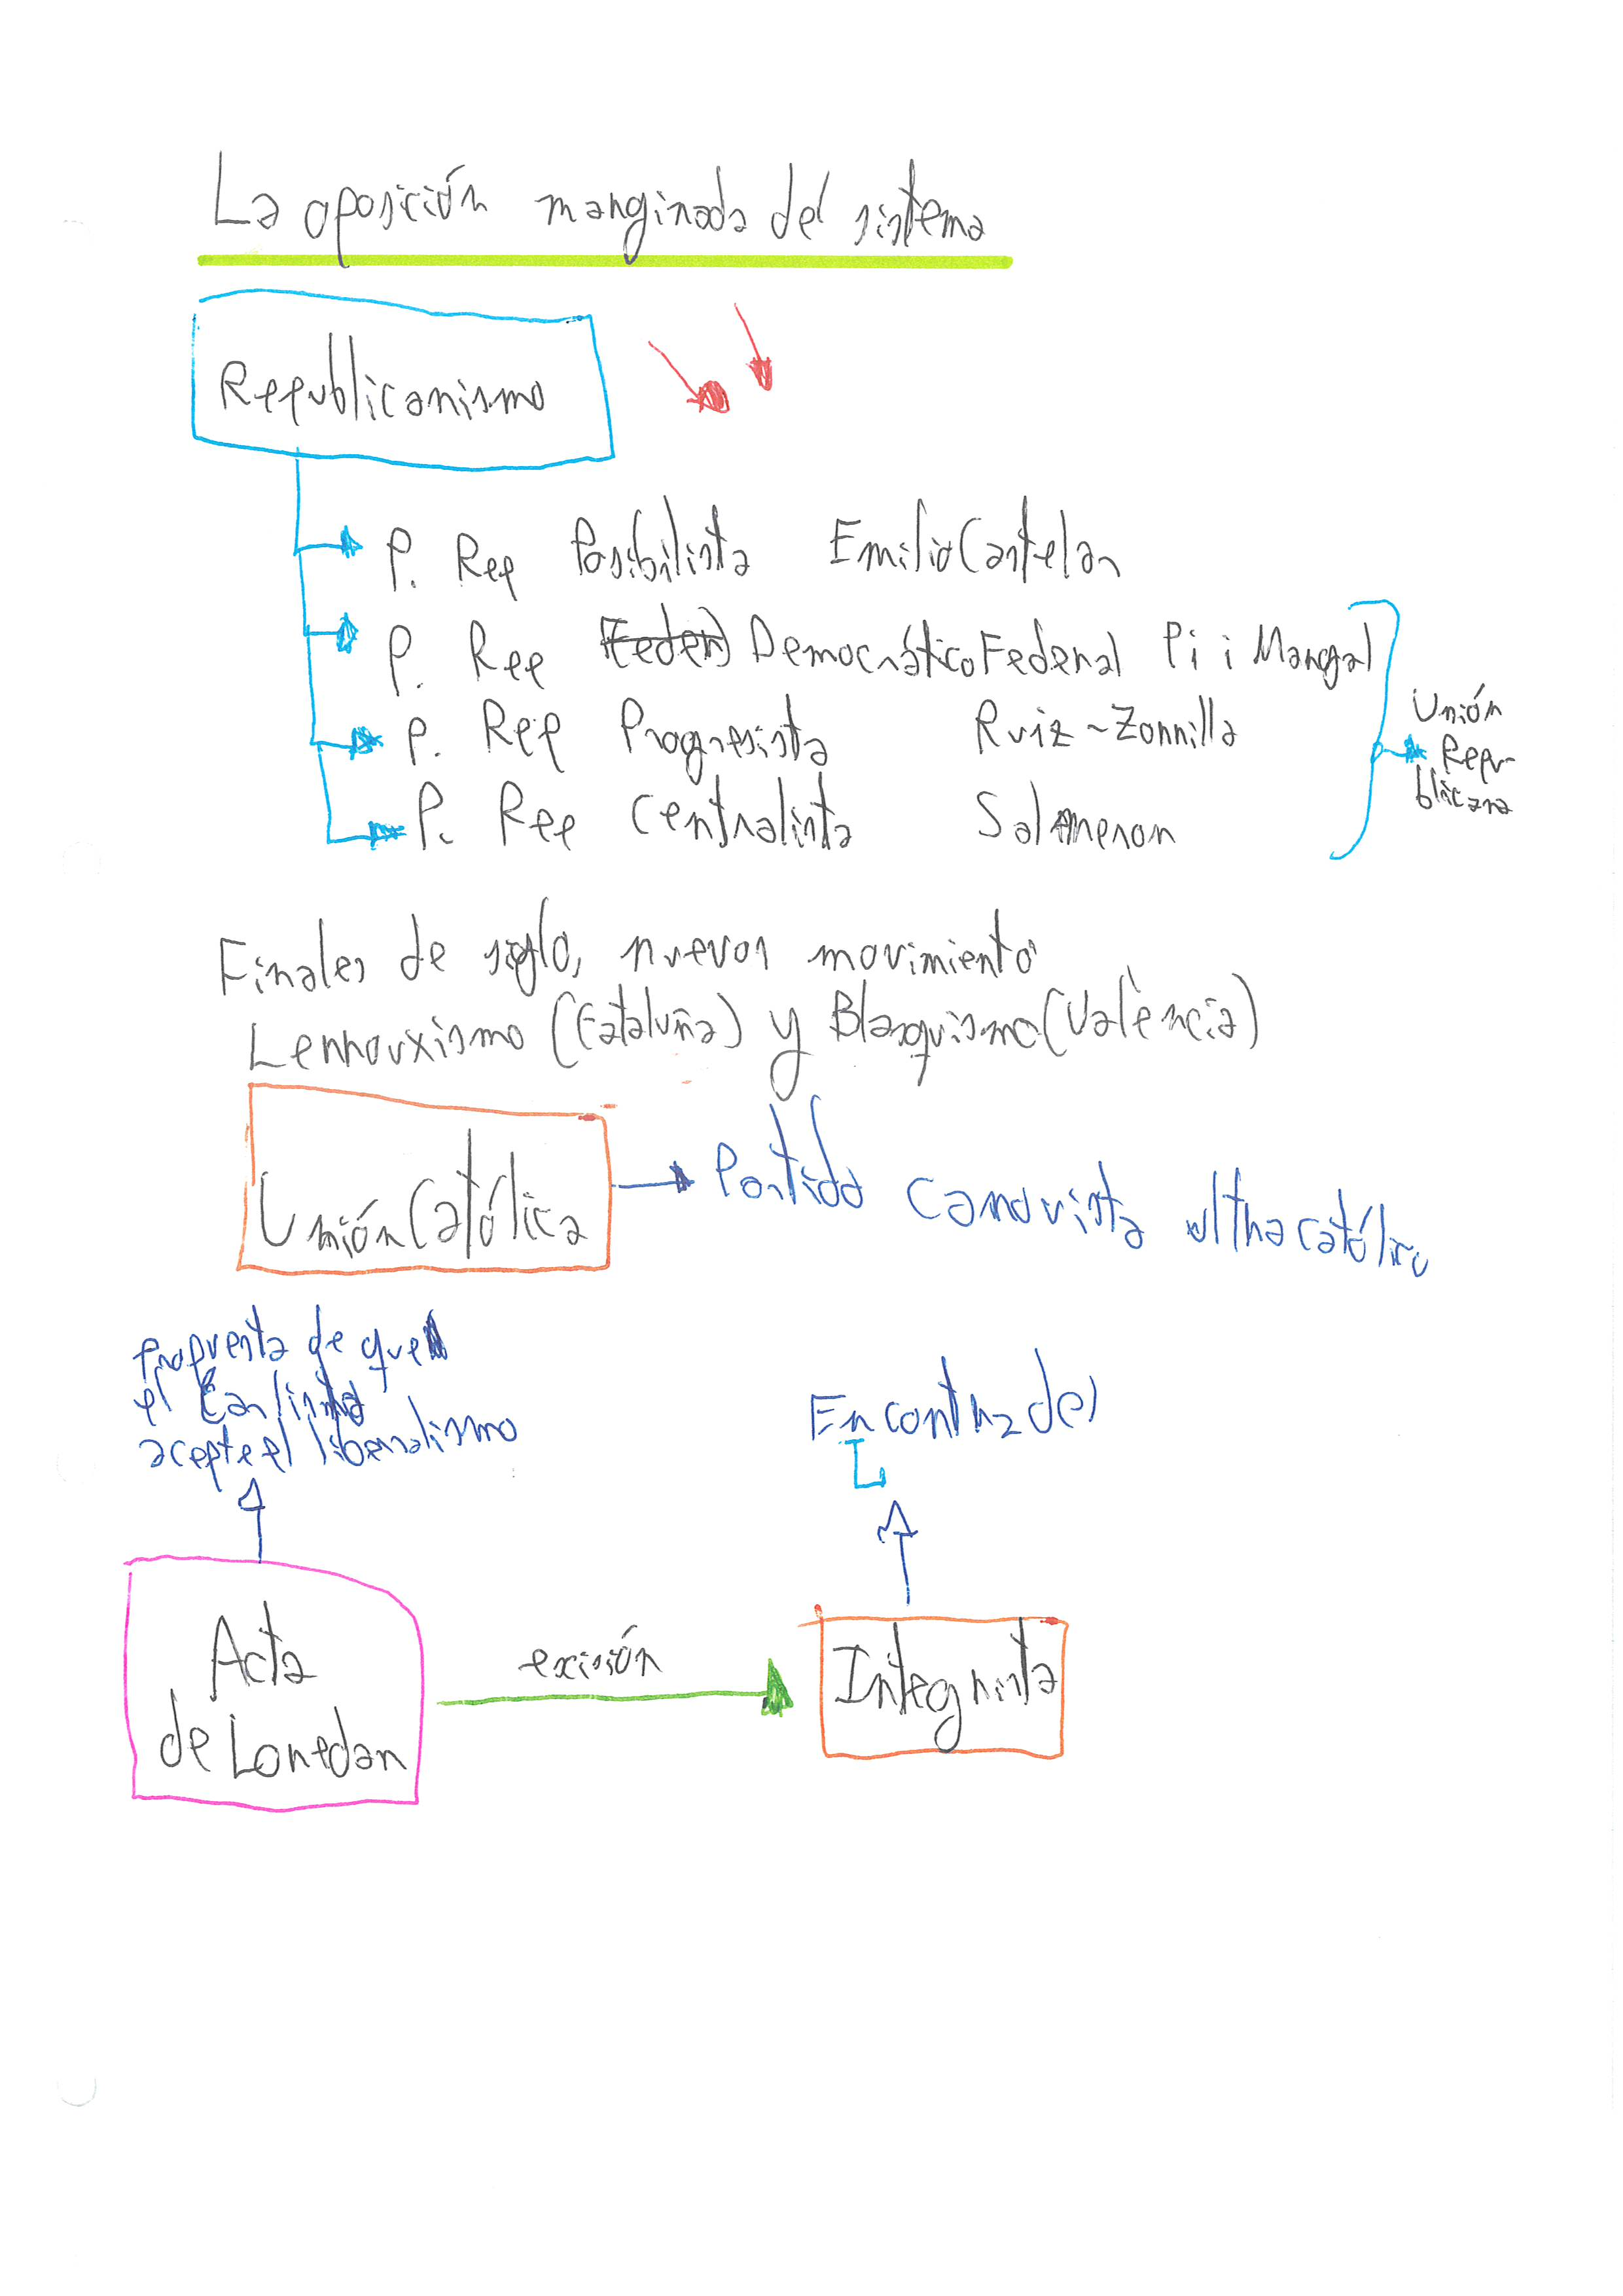 La oposición marginada del sistema
Republicanismo
P. Rep Posibilista Emilio Castelar
P. Rep (Feder) Democrático Federal Pi i Margal
P. Rep Progresista Ruiz-Zorrilla
P. Rep Centralista Salmeron
Unión
Repu-
blicana
Finales de siglo, nuevos movimiento
Lerrouxismo (Cataluña) y Blasquismo (València)
Unión Católica
Partido canovista ultracatólico
Propuesta de que
el Carlismo
acepte el liberalismo
En contra del
L
Acta
de Loredan
exisión
Integrista